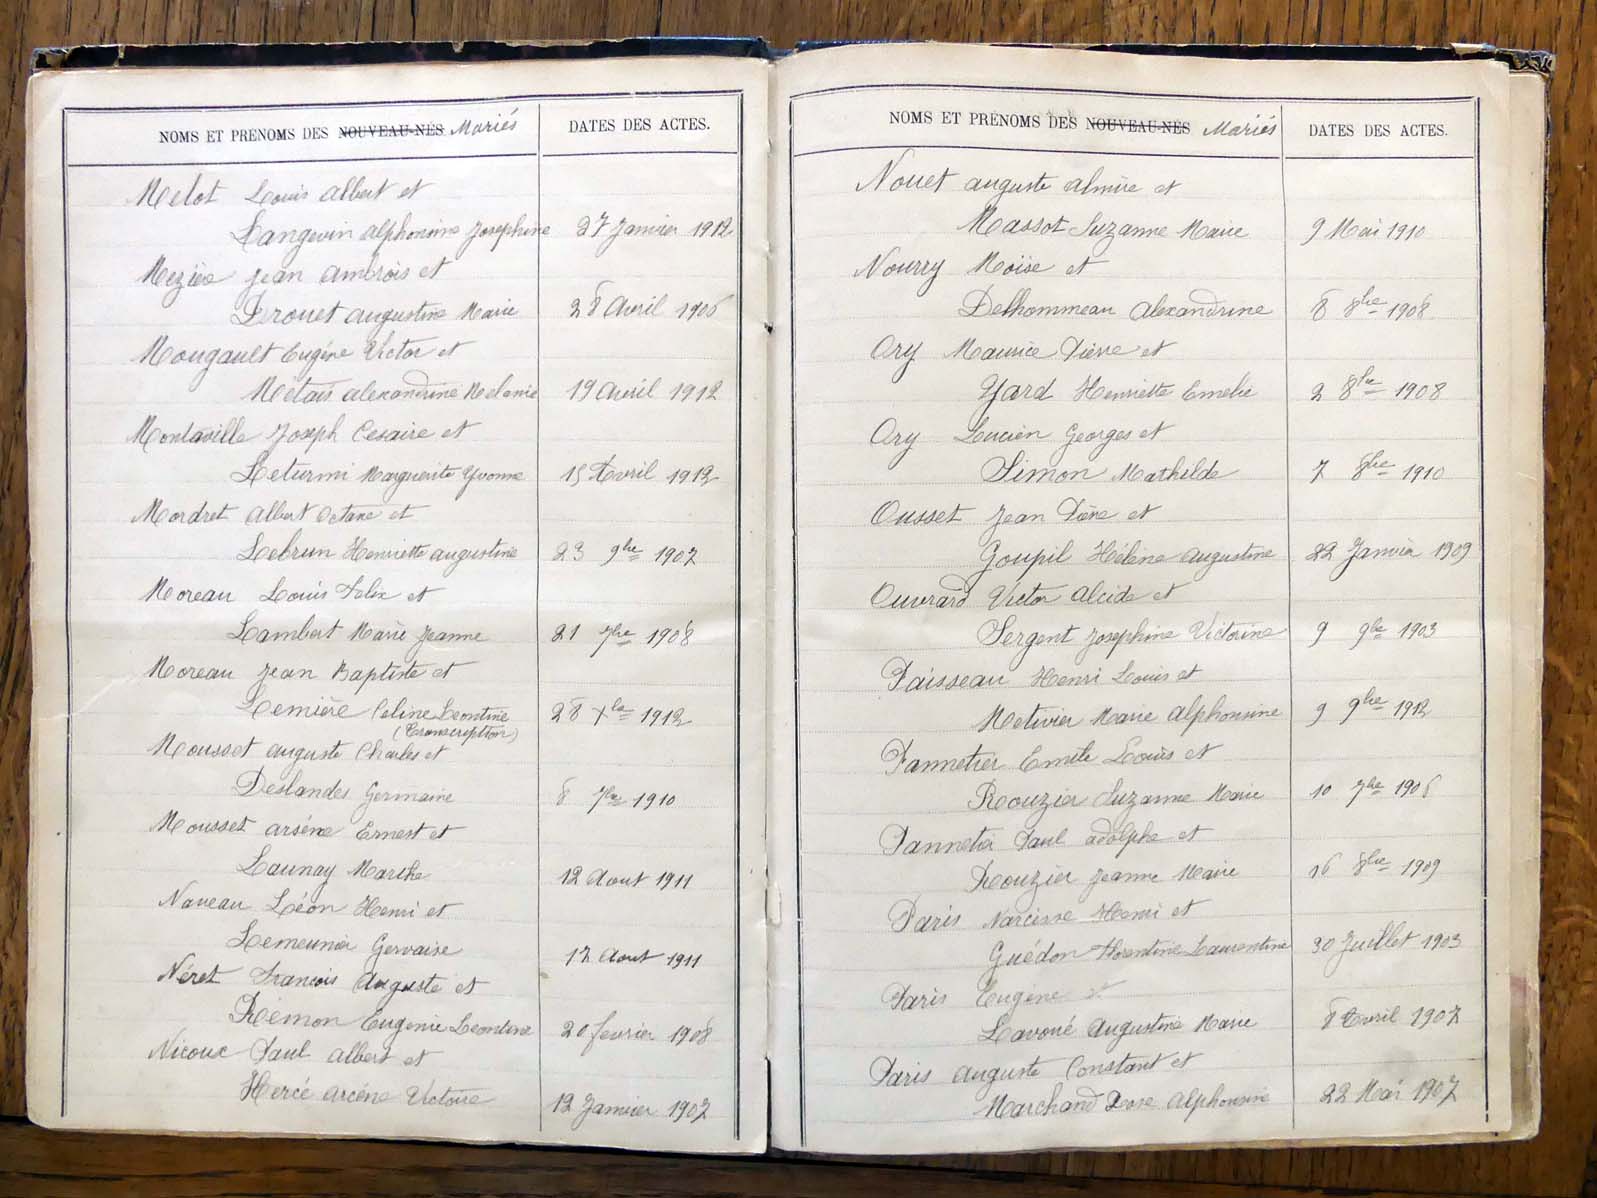 NOMS ET PRENOMS DES NOUVEAU-NÉS Mariés DATES DES ACTES.
Melot Louis Albert et
Langevin Alphonsine Josephine 27 Janvier 1912
Mezière Jean Ambrois et
Derouet Augustine Marie 28 Avril 1906
Mougault Eugène Victor et
Métais Alexandrine Melanie 19 Avril 1912
Montaville Joseph Cesaire et
Leturmi Marguerite Yvonne 15 Avril 1912
Mordret Albert Octave et
Lebrun Henriette Augustine 23 9bre 1907
Moreau Louis Felix et
Lambert Marie Jeanne 21 7bre 1908
Moreau Jean Baptiste et
Lemière Celine Leontine 28 Xbre 1912
(Transcription)
Mousset Auguste Charles et
Deslandes Germaine 8 7bre 1910
Mousset Arsène Ernest et
Launay Marthe 12 Aout 1911
Naveau Léon Henri et
Lemeunier Gervaise 17 Aout 1911
Néret François Auguste et
Rémon Eugenie Leontine 20 fevrier 1908
Nicoux Paul Albert et
Hercé Arcène Victoire 12 Janvier 1907
NOMS ET PRÉNOMS DES NOUVEAU-NÉS Mariés DATES DES ACTES.
Nouet Auguste Almire et
Massot Suzanne Marie 9 Mai 1910
Nourry Moïse et
Delhommeau Alexandrine 6 8bre 1908
Ory Maurice Pierre et
Yard Henriette Emelie 2 8bre 1908
Ory Lucien Georges et
Simon Mathilde 7 8bre 1910
Ousset Jean Pierre et
Goupil Hélène Augustine 22 Janvier 1909
Ouvrard Victor Alcide et
Sergent Josephine Victorine 9 9bre 1903
Paisseau Henri Louis et
Metivier Marie Alphonsine 9 9bre 1912
Pannetier Emile Louis et
Rouzier Suzanne Marie 10 7bre 1906
Pannetier Paul Adolphe et
Rouzier Jeanne Marie 16 8bre 1909
Paris Narcisse Henri et
Guédon Florentine Laurentine 30 Juillet 1903
Paris Eugène et
Lavoué Augustine Marie 8 Avril 1907
Paris Auguste Constant et
Marchand Rose Alphonsine 22 Mai 1907